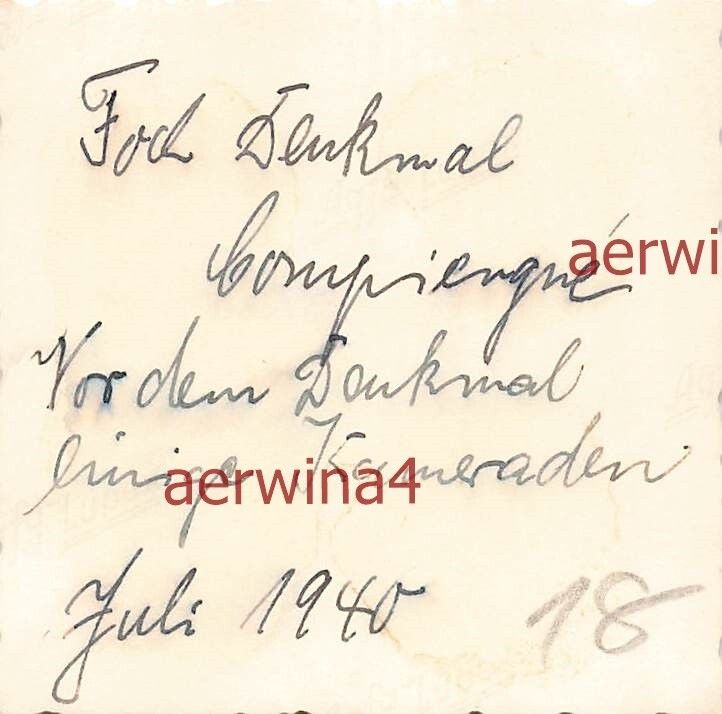 Foch Denkmal
Compiengné
aerwi
Vor dem Denkmal
einige Kameraden
aerwina4
Juli 1940
18